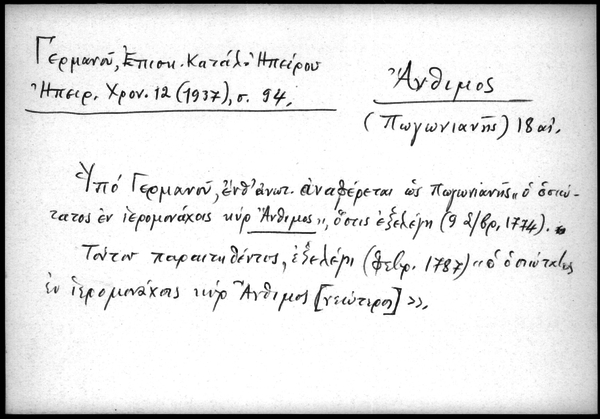 Γερμανοῦ, Ἐπισκ. Κατάλ. Ἠπείρου
Ἠπειρ. Χρον. 12 (1937), σ. 94.
Ἄνθιμος
(Πωγωνιανῆς) 18 αἰ.
Ὑπό Γερμανοῦ, ἔνθ' ἀνωτ. ἀναφέρεται ὡς Πωγωνιανῆς «ὁ ὁσιώ-
τατος ἐν ἱερομονάχοις κύρ Ἄνθιμος», ὅστις ἐξελέγη (9 δ/βρ. 1774).
Τούτου παραιτηθέντος, ἐξελέγη (φεβρ. 1787) «ὁ ὁσιώτατος
ἐν ἱερομονάχοις κύρ Ἄνθιμος [νεώτερος]».